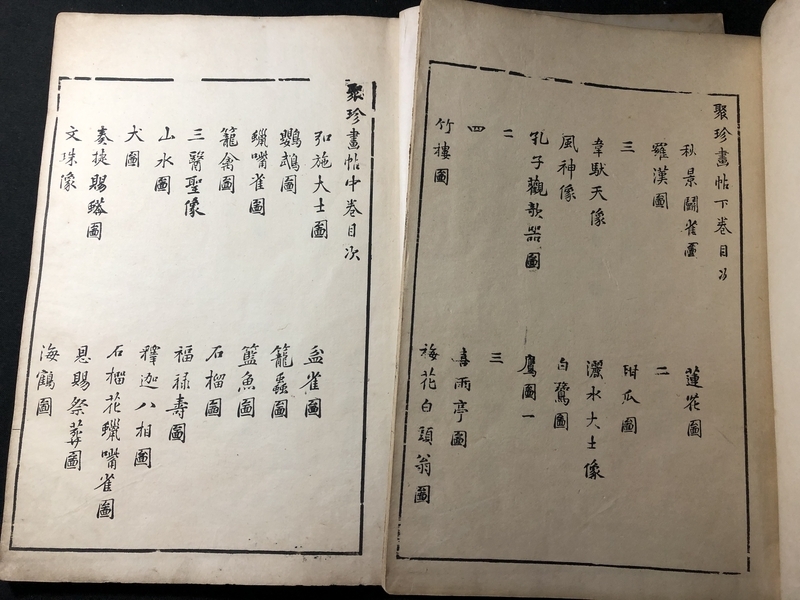 聚珍畫帖下卷目次
秋景鬭雀圖 蓮花圖
羅漢圖 二
三 甜瓜圖
韋馱天像 灑水大士像
風神像 白鷺圖
孔子觀欹器圖 鷹圖一
二 三
四 喜雨亭圖
竹樓圖 梅花白頭翁圖
聚珍畫帖中卷目次
弘施大士圖 盆雀圖
鸚鵡圖 籠蟲圖
蠟嘴雀圖 籃魚圖
籠禽圖 石榴圖
三醫聖像 福禄壽圖
山水圖 釋迦八相圖
犬圖 石榴花蠟嘴雀圖
奏捷賜蟒圖 恩賜祭葬圖
文珠像 海鶴圖